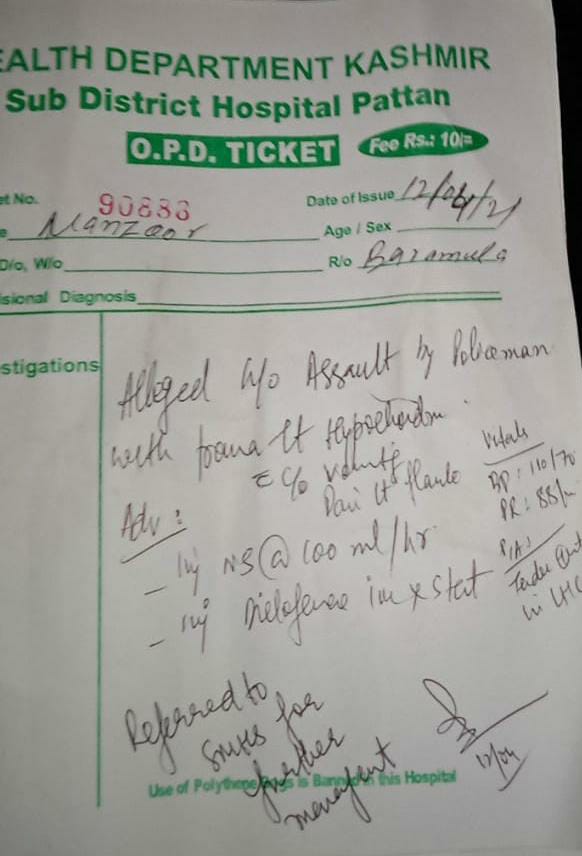 EALTH DEPARTMENT KASHMIR
Sub District Hospital Pattan
O.P.D. TICKET Fee Rs.: 10/=
et No. 90886 Date of Issue 12/04/21
e Manzoor Age / Sex
D/o, W/o R/o Baramula
sional Diagnosis
stigations
Alleged h/o Assault by Policeman
with trauma Lt Hypochondrm
c̄ c/o vomitg
Pain Lt flank
Vitals
BP: 110/70
PR: 88/m
Adv:
- Inj NS @ 100 ml/hr
- Inj Diclofenac im x Stat
P/A:
Tender
in LHC
Referred to
SMHS for
further
management
12/04
Use of Polythene Bags is Banned in this Hospital